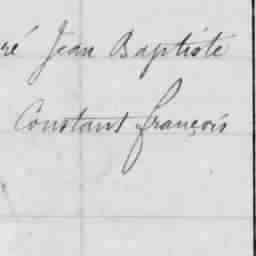 ré Jean Baptiste
Constant françois